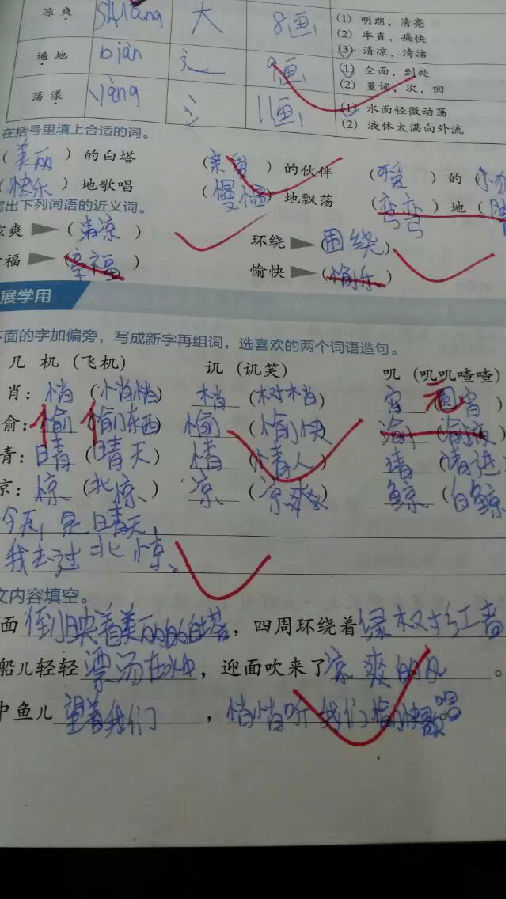 凉爽 shuang 大 8画 (1) 明朗，清亮
(2) 率直，痛快
(3) 清凉，清洁
遍地 biàn 辶 9画 (1) 全面，到处
(2) 量词，次，回
荡漾 yàng 氵 11画 (1) 水面轻微动荡
(2) 液体太满向外流
在括号里填上合适的词。
(美丽)的白塔 ( )的伙伴 ( )的
(快乐)地歌唱 (慢慢)地飘荡 (弯弯)地(
写出下列词语的近义词。
凉爽 (清凉) 环绕 (围绕)
幸福 (幸福) 愉快 (愉乐)
展学用
下面的字加偏旁，写成新字再组词，选喜欢的两个词语造句。
几 机 (飞机) 讥 (讥笑) 叽 (叽叽喳喳)
肖：悄 (小悄悄) 梢 (树梢) 宵 (元宵)
俞：偷 (偷东西) 愉 (愉快)
青：晴 (晴天) 情 (情人) 请 (请进)
京：惊 (北惊) 凉 (凉爽) 鲸 (白鲸)
今天，是日晴天，
我去过北惊。
文内容填空。
面倒映着美丽的白塔，四周环绕着绿权杉工者
船儿轻轻漂汤在水中，迎面吹来了凉爽的风。
中鱼儿望着我们，悄悄听我们愉快歌唱